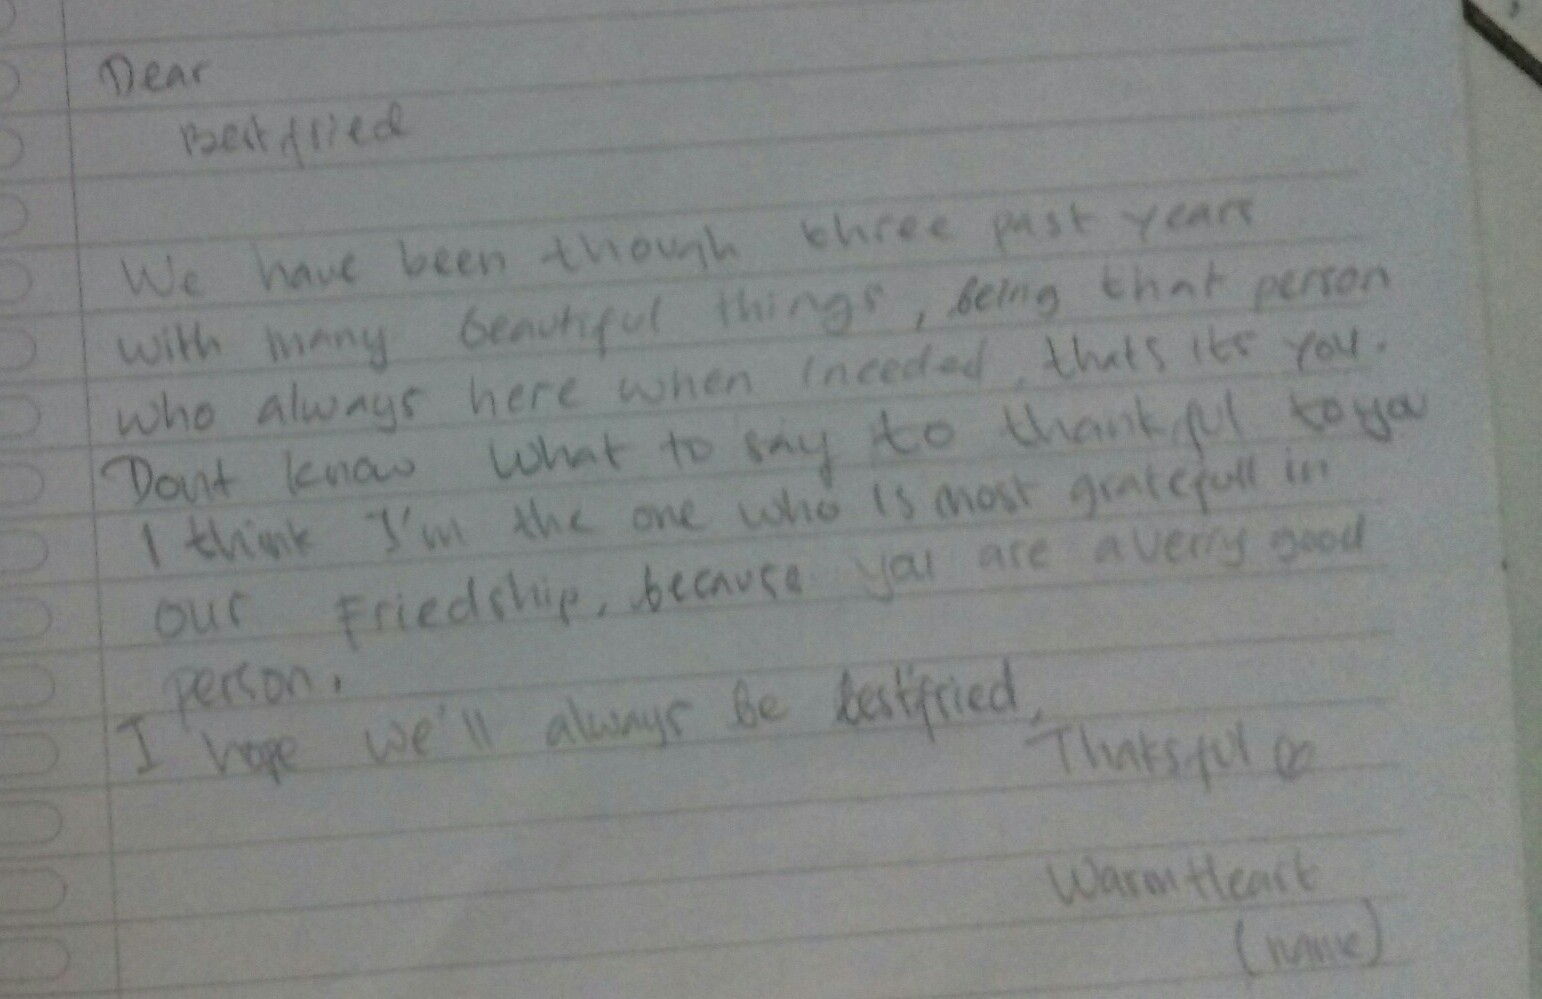 Dear
Bestfried
We have been though three past years
with many beautiful things, being that person
who always here when i needed, thats its you.
Dont know what to say to thankful to you
I think I'm the one who is most gratefull in
our Friedship, because you are a verry good
person.
I hope we'll always be bestfried,
Thaksful
WarmHeart
(name)